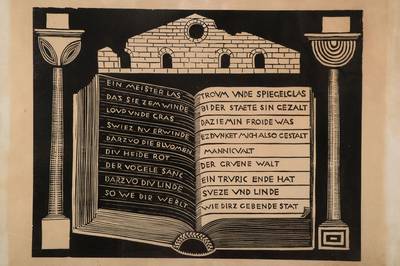 EIN MEISTER LAS
TROVM VNDE SPIEGELGLAS
DAS SIE ZEM WINDE
BI DER STAETE SIN GEZALT
LOVP VNDE GRAS
DAZ IE MIN FROIDE WAS
SWIEZ NV ERWINDE
EZ DVNKET MICH ALSO GESTALT
DARZVO DIE BLVOMEN
MANNICVALT
DIV HEIDE ROT
DER GRVENE WALT
DER VOGELE SANC
EIN TRVRIC ENDE HAT
DARZVO DIV LINDE
SVEZE VND LINDE
SO WE DIR WERLT
WIE DIRZ GEBENDE STAT